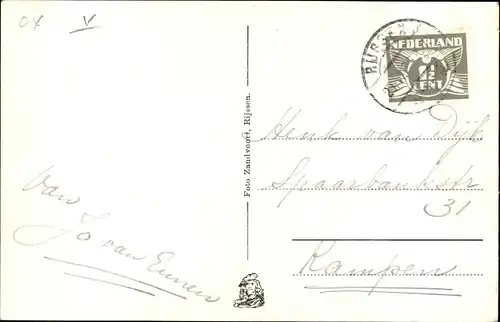 04 V
RIJSSEN
NEDERLAND
1½
CENT
Foto Zandvoort, Rijssen.
Henk van Dijk
Spaarbankstr
31
Kampen
Van
Jo van Eunen